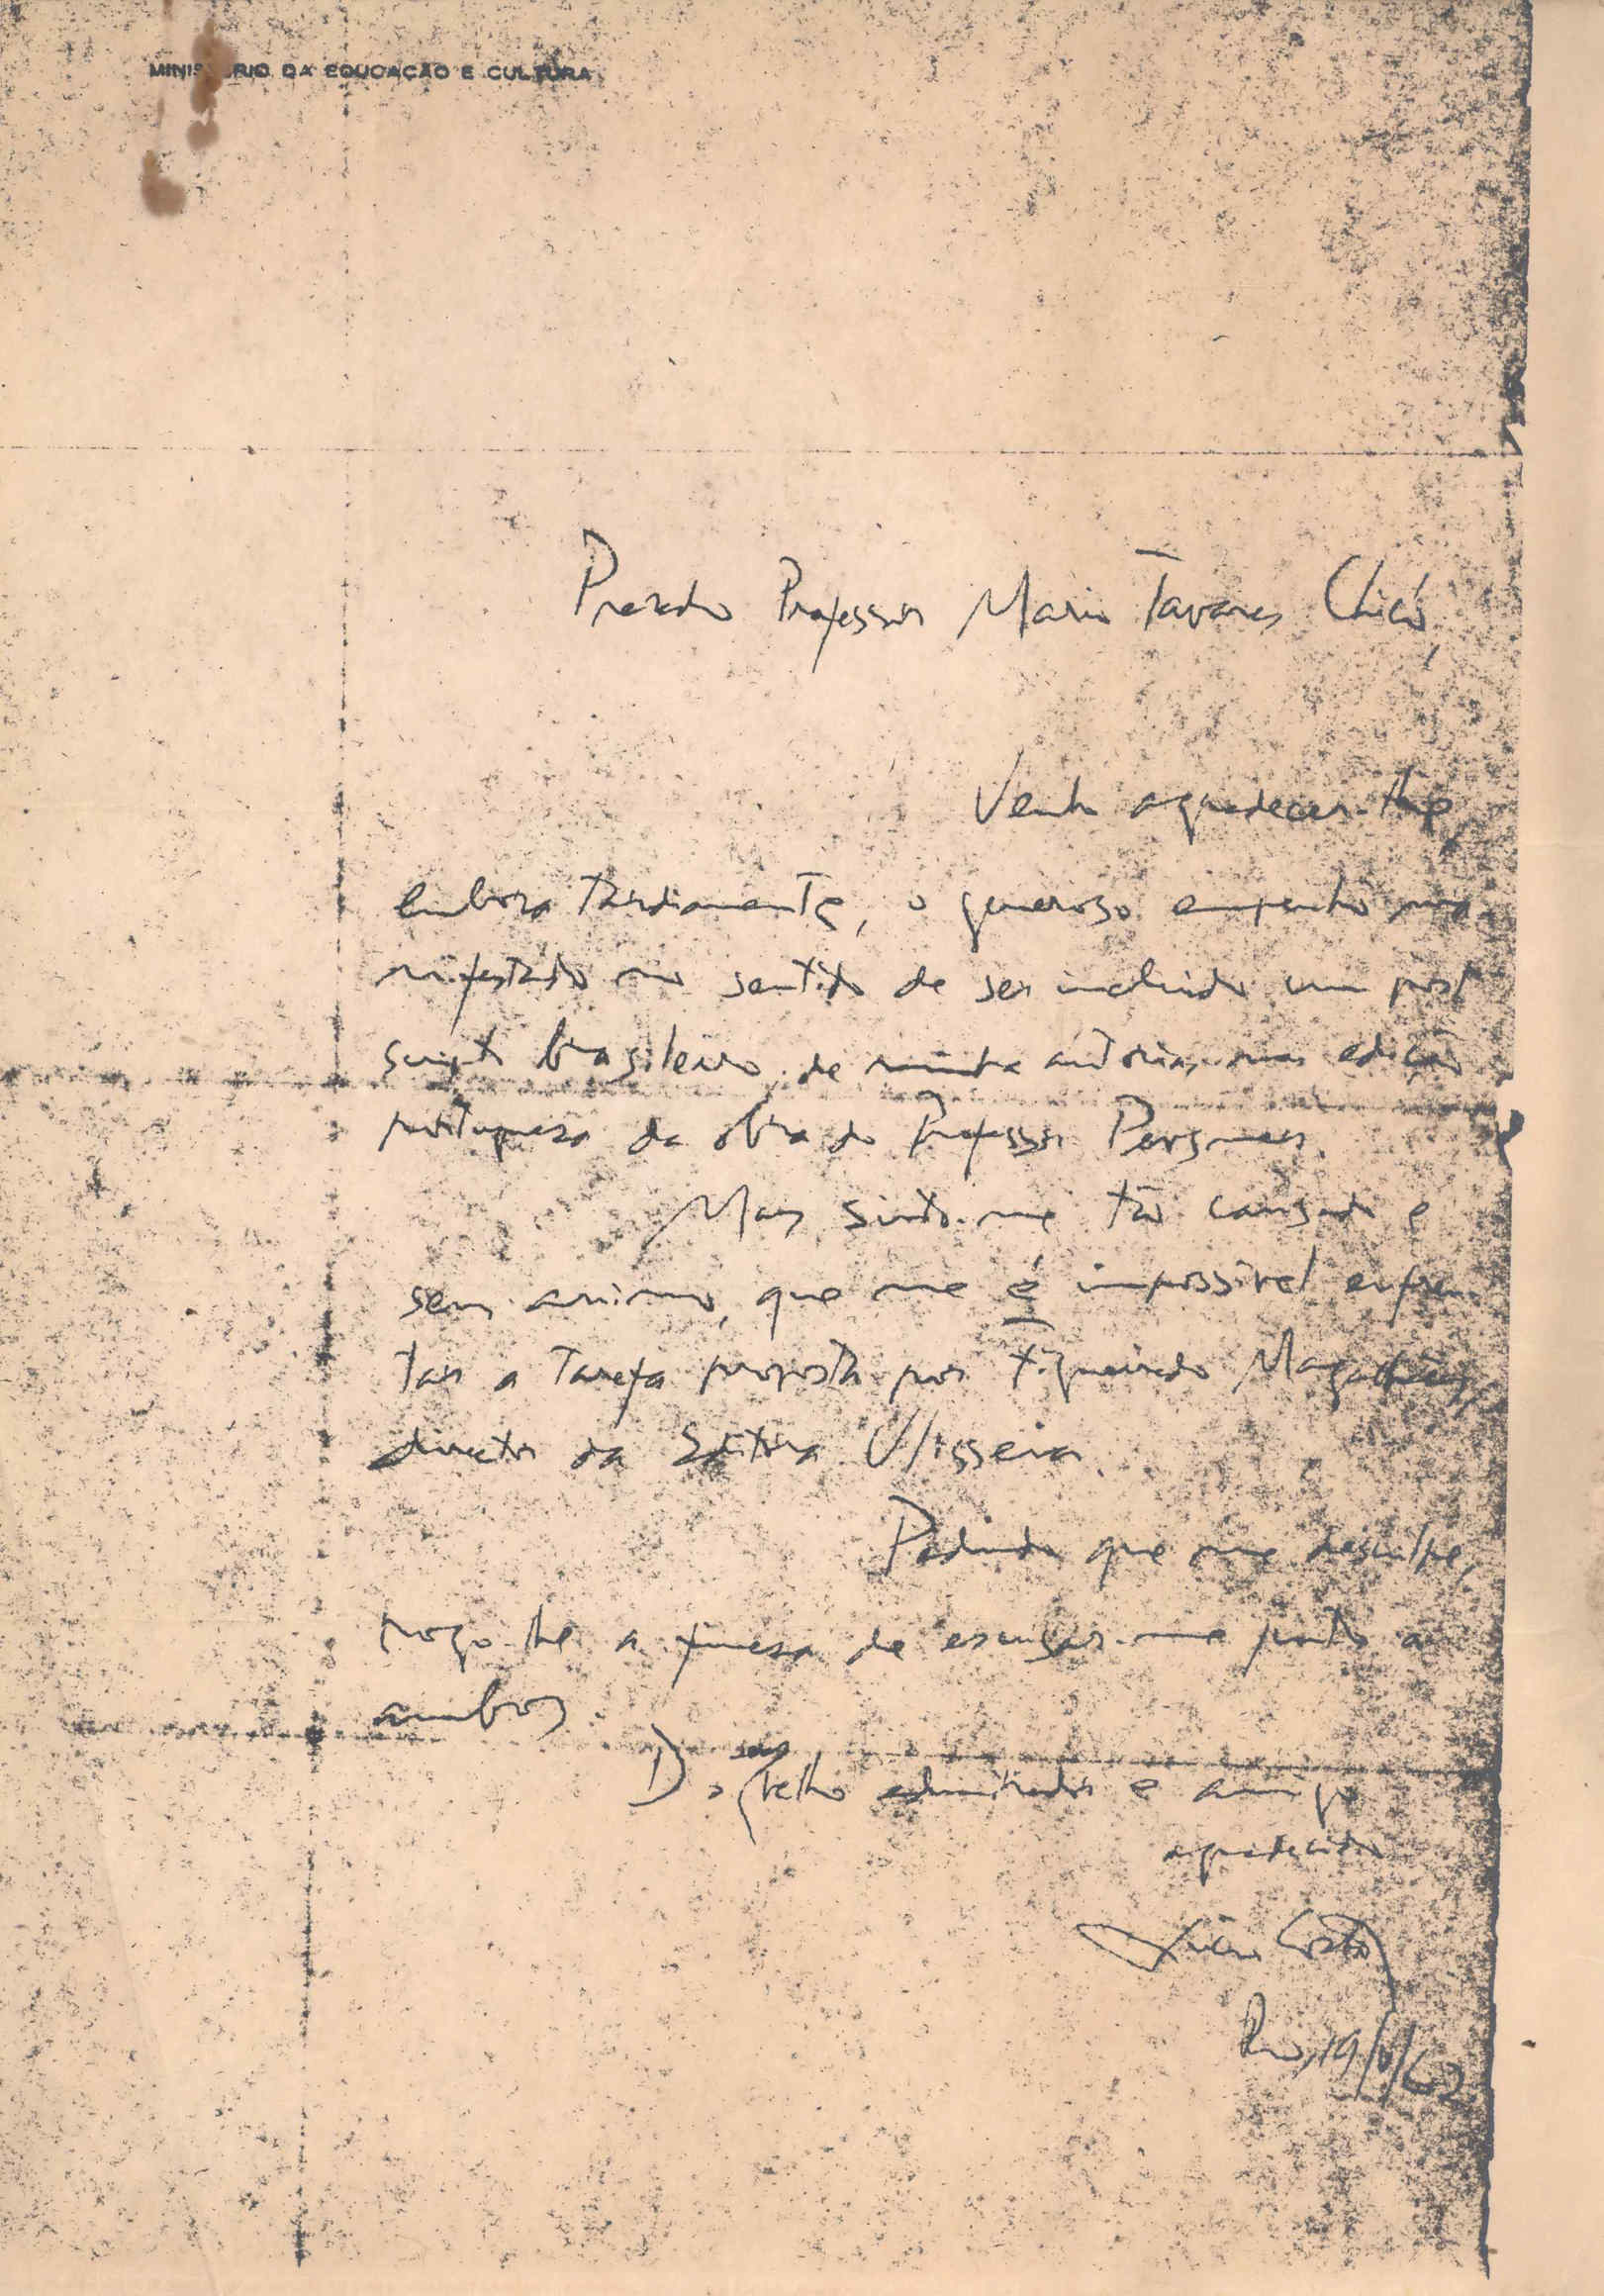 MINISTÉRIO DA EDUCAÇÃO E CULTURA
Prezado Professor Mario Tavares Chicó,
Venho agradecer-lhe,
embora tardiamente, o generoso empenho ma-
nifestado no sentido de ser incluido um post
scriptum brasileiro, de minha autoria, na edição
portuguesa da obra do Professor Pevsner.
Mas sinto-me tão cansado e
sem animo, que me é impossivel enfren-
tar a tarefa proposta por Figueiredo Magalhães,
director da Editora Ulisseia.
Pedindo que me desculpe,
rogo-lhe a fineza de escusar-me junto a
ambos
Do seu
velho admirador e amigo
agradecido
Lucio Costa
Rio, 19/ /62